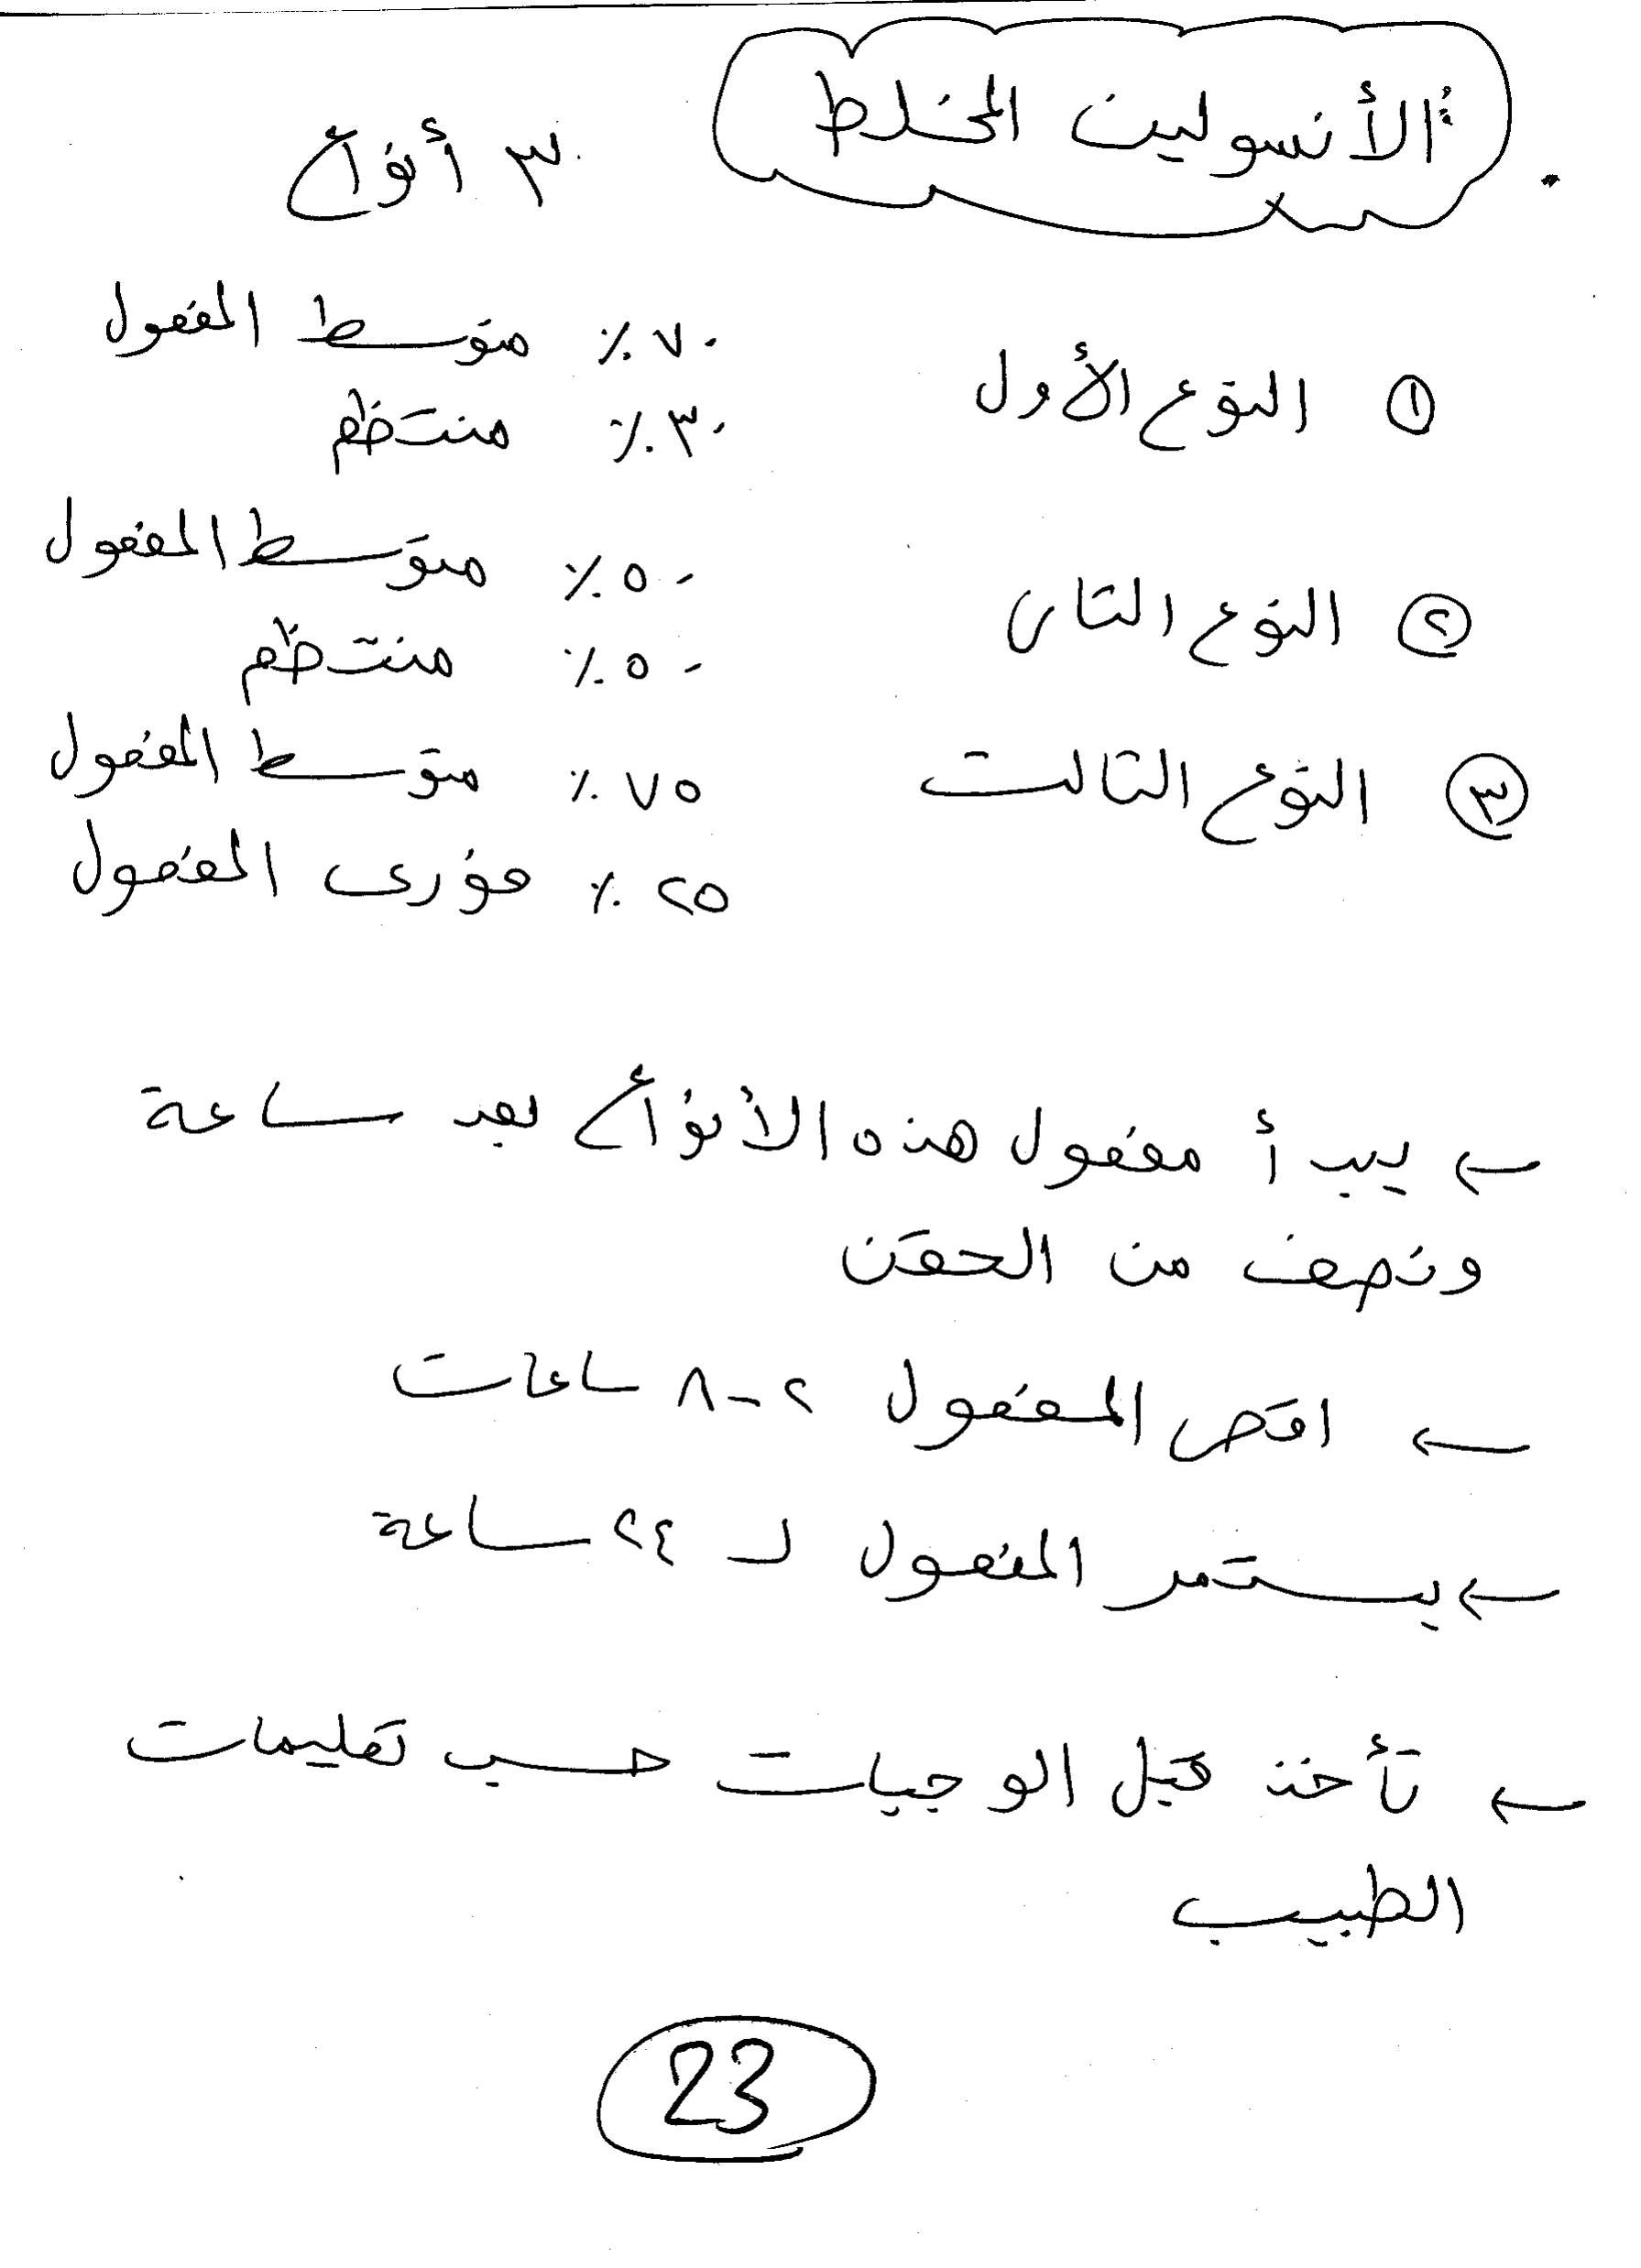 الأنسولين المخلط ٣ أنواع
① النوع الأول ٧٠٪ متوسط المفعول
٣٠٪ منتظم
② النوع الثاني ٥٠٪ متوسط المفعول
٥٠٪ منتظم
③ النوع الثالث ٧٥٪ متوسط المفعول
٢٥٪ فوري المفعول
← يبدأ مفعول هذه الأنواع بعد ساعة
ونصف من الحقن
← اقص المفعول ٢-٨ ساعات
← يستمر المفعول لـ ٢٤ ساعة
← تأخذ قبل الوجبات حسب تعليمات
الطبيب
23